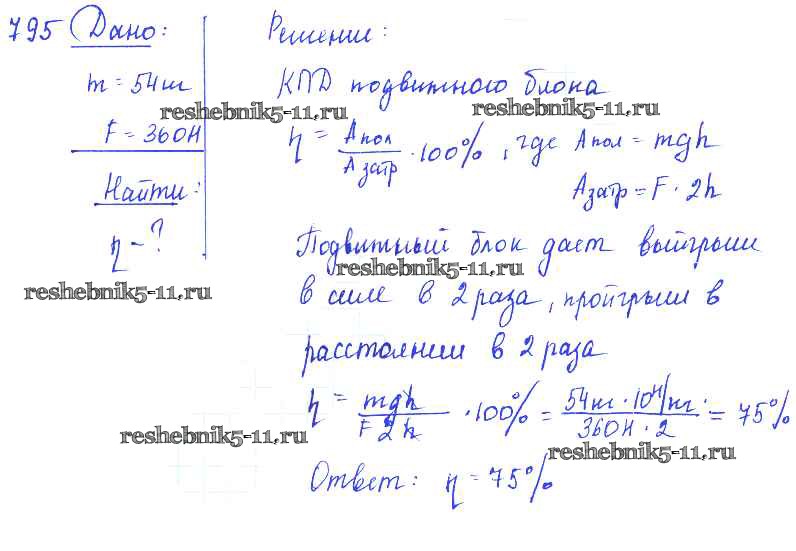 795 Дано:
m = 54 кг
F = 360 Н
Найти:
η - ?
Решение:
КПД подвижного блока
η = Aпол / Aзатр · 100%, где Aпол = mgh
Aзатр = F · 2h
Подвижный блок дает выйгрыш
в силе в 2 раза, пройгрыш в
расстоянии в 2 раза
η = mgh / F 2h · 100% = 54 кг · 10 Н/кг / 360 Н · 2 = 75%
Ответ: η = 75%
reshebnik5-11.ru
reshebnik5-11.ru
reshebnik5-11.ru
reshebnik5-11.ru
reshebnik5-11.ru
reshebnik5-11.ru